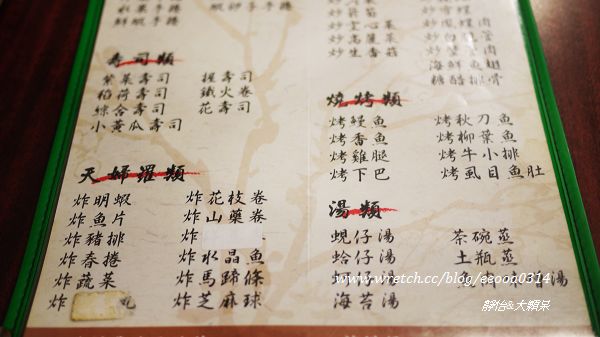 鮮蝦手捲
壽司類
紫菜壽司 握壽司
稻荷壽司 鐵火卷
綜合壽司 花壽司
小黃瓜壽司
天婦羅類
炸明蝦 炸花枝卷
炸魚片 炸山藥卷
炸豬排 炸
炸春捲 炸水晶魚
炸蔬菜 炸馬蹄條
炸 丸 炸芝麻球
炒空心菜
炒高麗菜
炒生香菇
海鮮魚翅
糖醋排骨
燒烤類
烤鰻魚 烤秋刀魚
烤香魚 烤柳葉魚
烤雞腿 烤牛小排
烤下巴 烤虱目魚肚
湯類
蜆仔湯 茶碗蒸
蛤仔湯 土瓶蒸
仔湯 魚 湯
海苔湯
www.wretch.cc/blog/eeooa0314
靜怡&大顆呆